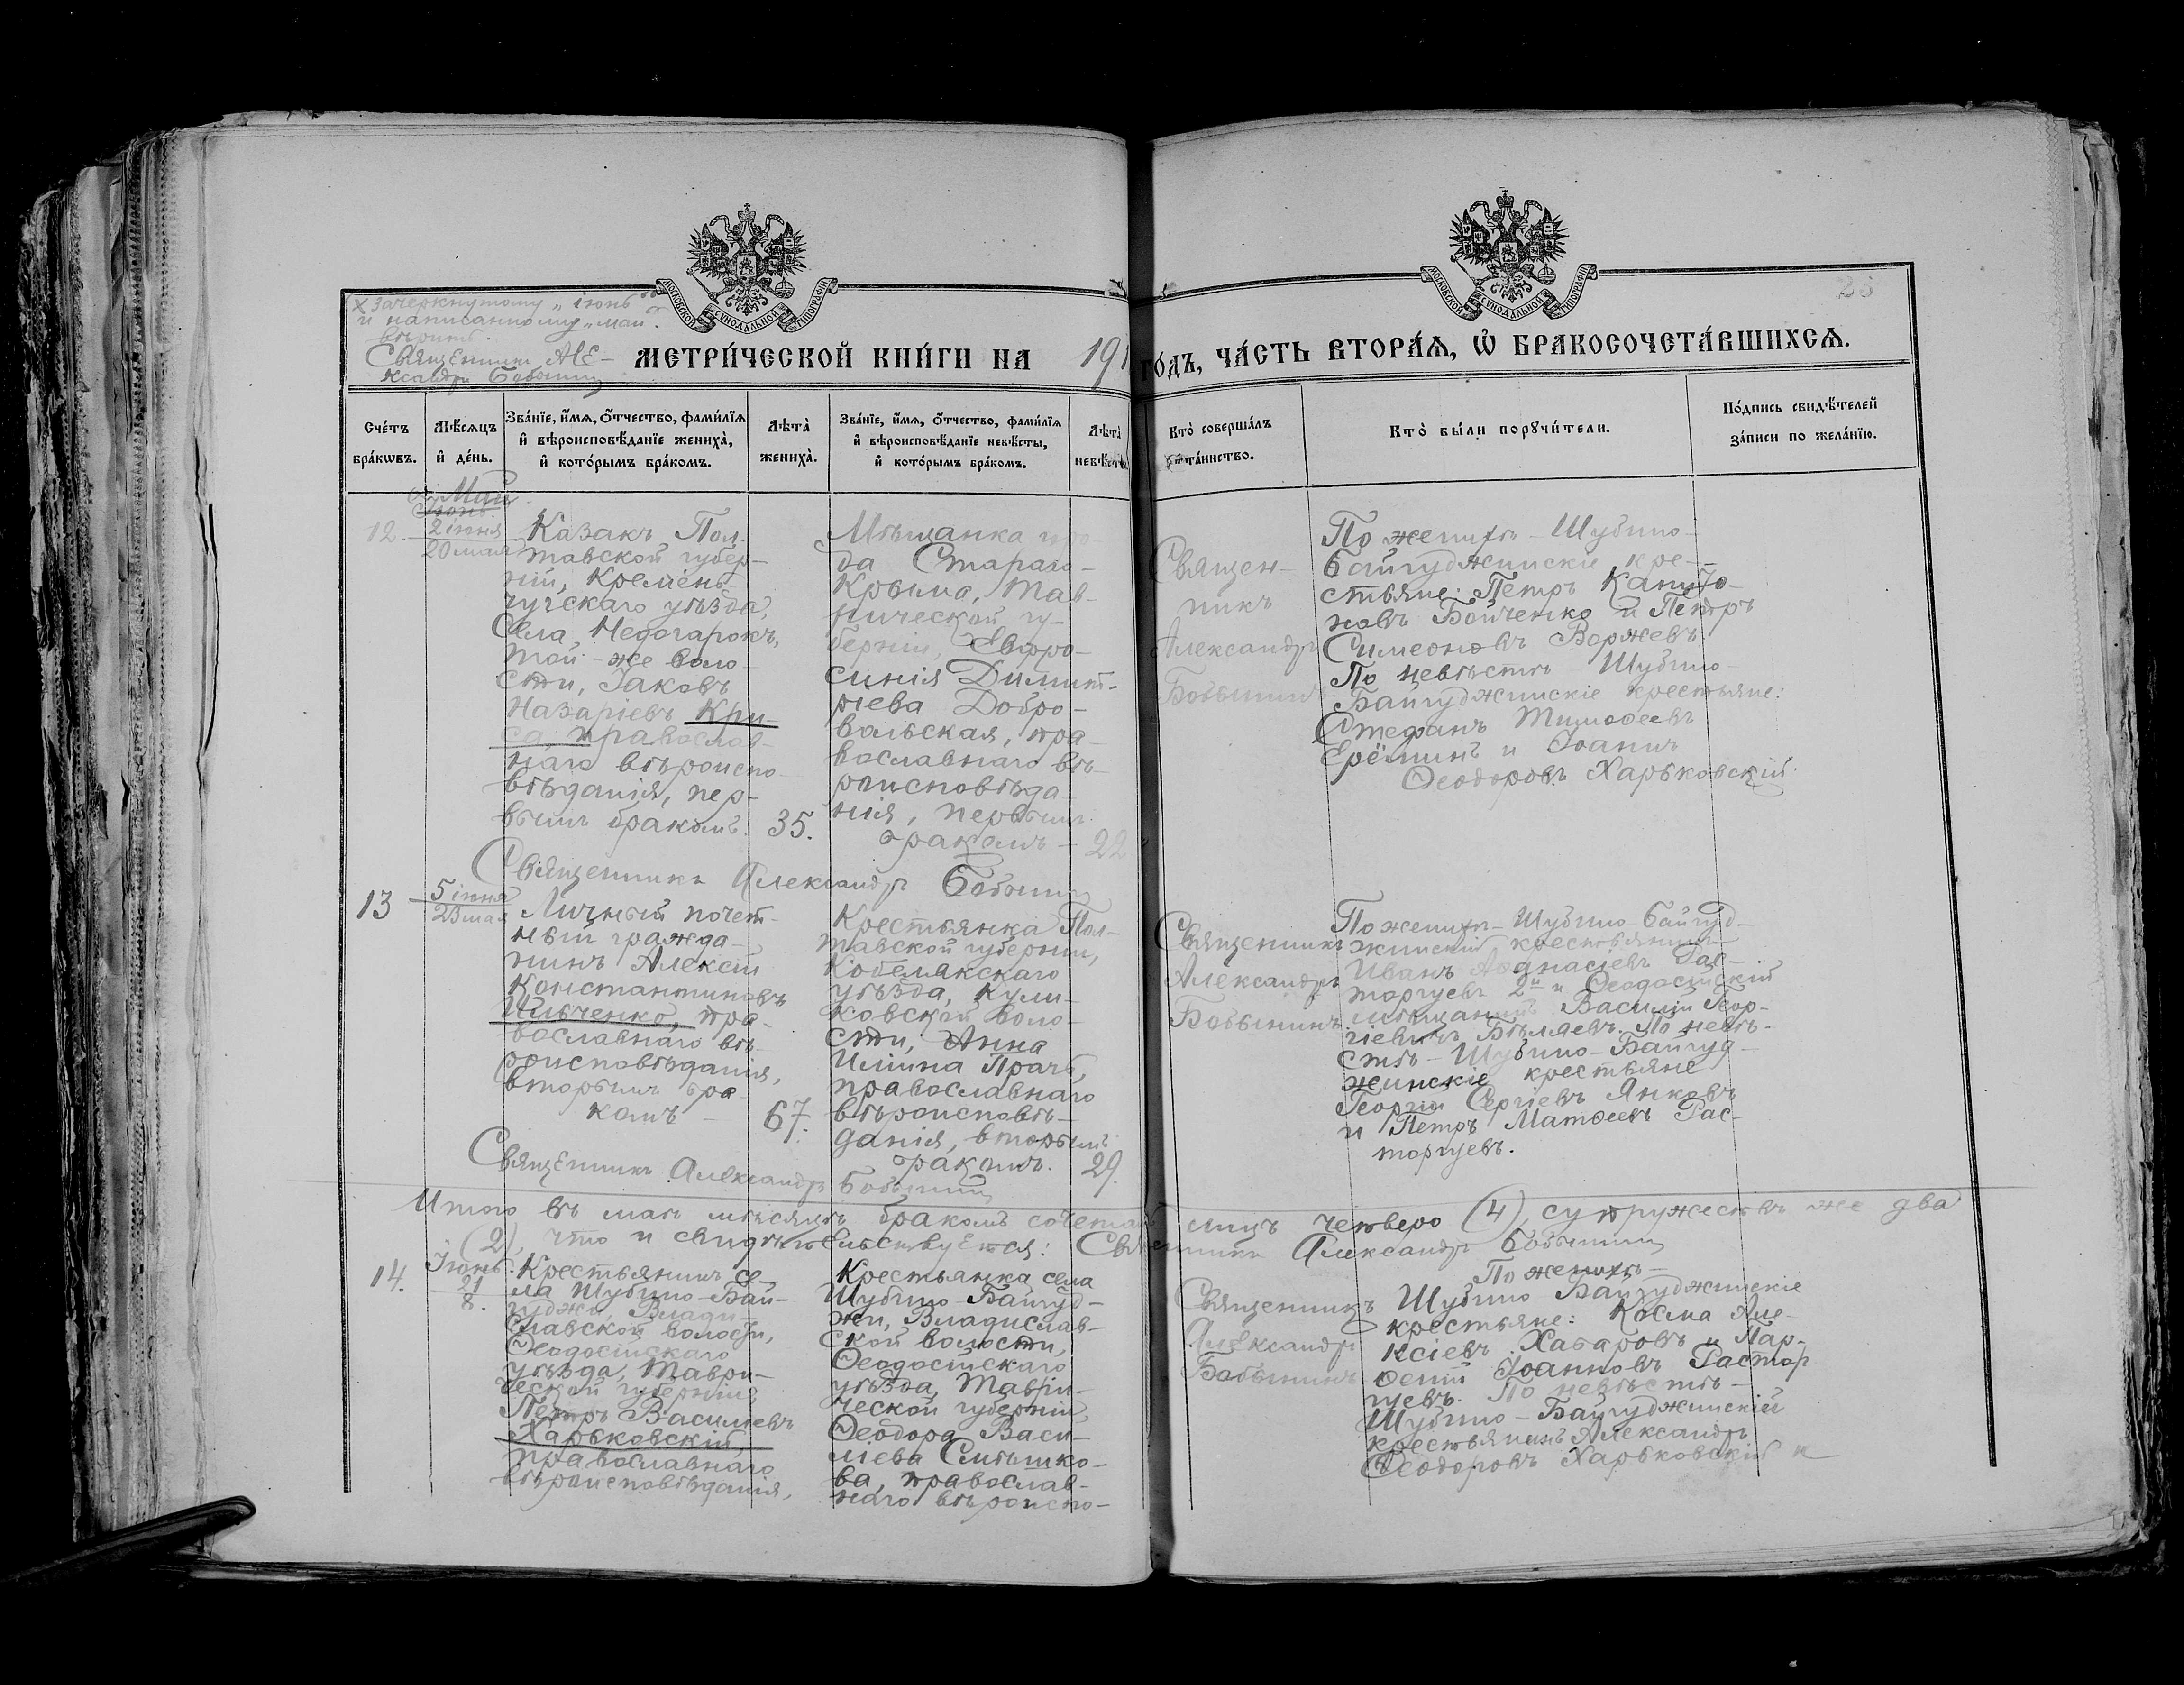 х зачеркнутому „іюнь“
и написанному „май“
вѣрить.
Священникъ Але-
ксандръ Бобынинъ
28
МОСКОВСКОЙ СУНОДАЛЬНОЙ ТИПОГРАФІИ
МОСКОВСКОЙ СУНОДАЛЬНОЙ ТИПОГРАФІИ
МЕТРИ́ЧЕСКОЙ КНИ́ГИ НА 191 ГО́ДЪ, ЧА́СТЬ ВТОРА́Ѧ, Ѽ БРАКОСОЧЕТА́ВШИХСѦ.
Сче́тъ
бра́кѡвъ.
Мѣ́сѧцъ
и҆ де́нь.
Зва́нїе, и҆́мѧ, ѻ҆́тчество, фами́лїѧ
и҆ вѣроисповѣ́данїе жениха̀,
и҆ кото́рымъ бра́комъ.
Лѣта̀
жениха̀.
Зва́нїе, и҆́мѧ, ѻ҆́тчество, фами́лїѧ
и҆ вѣроисповѣ́данїе невѣ́сты,
и҆ кото́рымъ бра́комъ.
Лѣта̀
невѣ́сты.
Кто̀ соверша́лъ
та́инство.
Кто̀ бы́ли порꙋчи́тели.
По́дпись свидѣ́телей
за́писи по жела́нїю.
Май
Іюнь.
12.
2 іюня
20 мая
Казакъ Пол-
тавской губер-
ніи, Кремен-
чугскаго уѣзда,
села Недогарокъ,
той-же воло-
сти, Іаковъ
Назаріевъ Кри-
са, православ-
наго вѣроиспо-
вѣданія, пер-
вымъ бракомъ.
35.
Мѣщанка го-
да Стараго-
Крыма, Тав-
рической гу-
берніи, Евфро-
синія Димит-
ріева Добро-
вольская, пра-
вославнаго вѣ-
роисповѣда-
нія, первымъ
бракомъ –
22
Священ-
никъ
Александръ
Бобынинъ
По женихѣ – Шубино-
Байгуджинскіе кре-
стьяне: Петръ Капито-
новъ Бойченко и Петръ
Симеоновъ Воржевъ
По невѣстѣ – Шубино-
Байгуджинскіе крестьяне:
Стефанъ Тимоѳеевъ
Ерёминъ и Іоаннъ
Ѳеодоровъ Харьковскій.
Священникъ Александръ Бобынинъ
13
5 іюня
23 мая
Личный почет-
ный гражда-
нинъ Алексій
Константиновъ
Ильченко, пра-
вославнаго вѣ-
роисповѣданія,
вторымъ бра-
комъ –
67.
Крестьянка Пол-
тавской губерніи,
Кобелякскаго
уѣзда, Кули-
ковской воло-
сти, Анна
Иліина Прачъ,
православнаго
вѣроисповѣ-
данія, вторымъ
бракомъ.
29.
Священникъ
Александръ
Бобынинъ
По женихѣ – Шубино Байгуд-
жинскій крестьянинъ
Иванъ Аѳанасіевъ Рас-
торгуевъ 2й и Ѳеодосійскій
мѣщанинъ Василій Геор-
гіевичъ Бѣляевъ. По невѣ-
стѣ – Шубино-Байгуд-
жинскіе крестьяне
Георгій Сергіевъ Янковъ
и Петръ Матѳеевъ Рас-
торгуевъ.
Священникъ Александръ Бобынинъ
Итого въ маѣ мѣсяцѣ бракомъ сочеталось лицъ четверо (4), супружествъ же два
(2), что и свидѣтельствуется: Священникъ Александръ Бобынинъ
14.
Іюнь.
21
8.
Крестьянинъ се-
ла Шубино-Бай-
гуджи, Влади-
славской волости,
Ѳеодосійскаго
уѣзда, Таври-
ческой губерніи,
Петръ Василіевъ
Харьковскій,
православнаго
вѣроисповѣданія,
Крестьянка села
Шубино-Байгуд-
жи, Владислав-
ской волости,
Ѳеодосійскаго
уѣзда, Таври-
ческой губерніи,
Ѳеодора Васи-
ліева Смѣшко-
ва, православ-
наго вѣроиспо-
Священникъ
Александръ
Бобынинъ
По женихѣ –
Шубино Байгуджинскіе
крестьяне: Косма Але-
ксіевъ Хабаровъ и Пар-
ѳеній Іоанновъ Растор
гуевъ. По невѣстѣ –
Шубино-Байгуджинскій
крестьянинъ Александръ
Ѳеодоровъ Харьковскій и